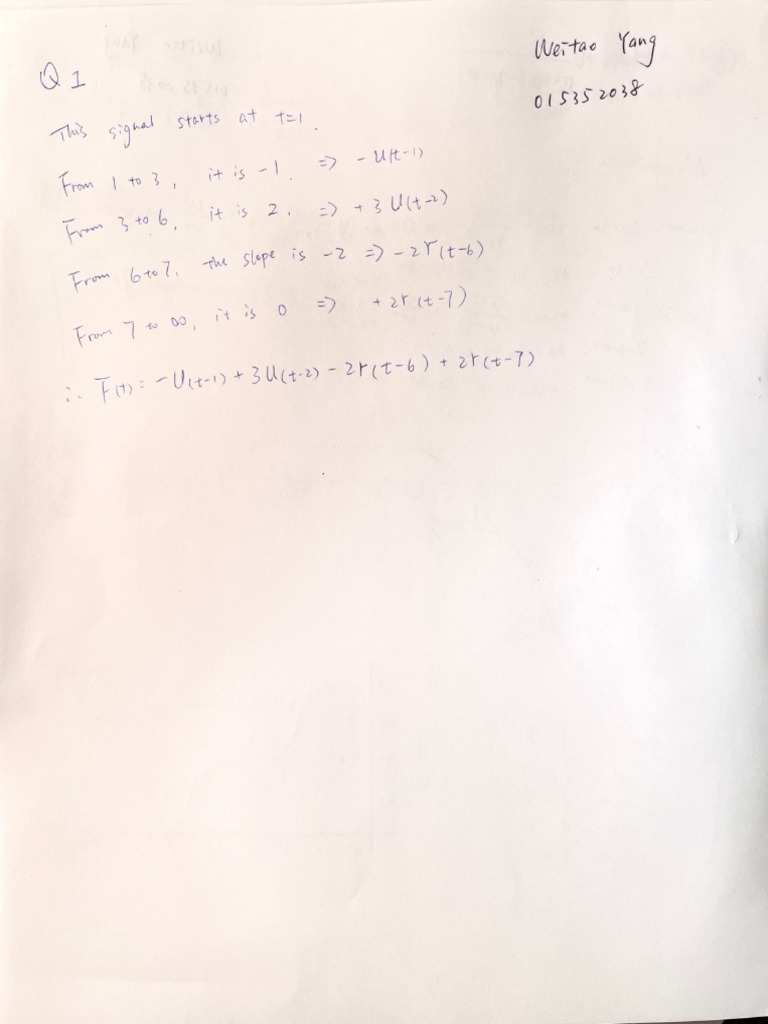 Weitao Yang
Q1
015352038
This signal starts at t=1.
From 1 to 3, it is -1. => -U(t-1)
From 3 to 6, it is 2. => +3U(t-2)
From 6 to 7, the slope is -2 => -2r(t-6)
From 7 to ∞, it is 0 => +2r(t-7)
∴ F(t) = -U(t-1) + 3U(t-2) - 2r(t-6) + 2r(t-7)